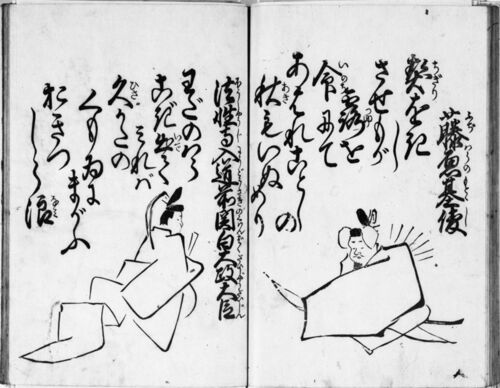 藤原基俊
契をきし
させもが
露を
命にて
あはれことしの
秋もいぬめり
法性寺入道前関白太政大臣
わだのはら
こぎ出て
みれば
久かたの
くもゐに
まがふ
おきつ
しら浪